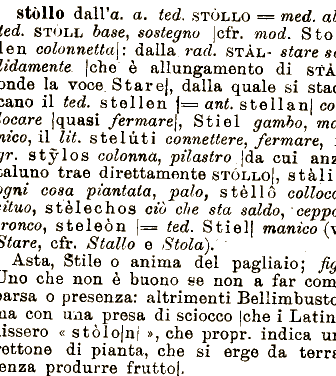 stòllo dall'a. a. ted. STÒLLO = med. al
ted. STÒLL base, sostegno |cfr. mod. Sto
len colonnetta|: dalla rad. STÀL- stare so
lidamente |che è allungamento di STÀ
onde la voce Stare|, dalla quale si stac
cano il ted. stellen |= ant. stellan| co
locare |quasi fermare|, Stiel gambo, ma
nico, il lit. stelùti connettere, fermare, i
gr. stỳlos colonna, pilastro |da cui anz
taluno trae direttamente STÒLLO|, stàli
ogni cosa piantata, palo, stèllô colloco
siluo, stèlechos ciò che sta saldo, ceppo
tronco, steleòn |= ted. Stiel| manico (v
Stare, cfr. Stallo e Stola).
Asta, Stile o anima del pagliaio; fig
Uno che non è buono se non a far com
parsa o presenza: altrimenti Bellimbusto
ma con una presa di sciocco |che i Latin
dissero « stòlo|n| », che propr. indica un
rettone di pianta, che si erge da terra
senza produrre frutto|.